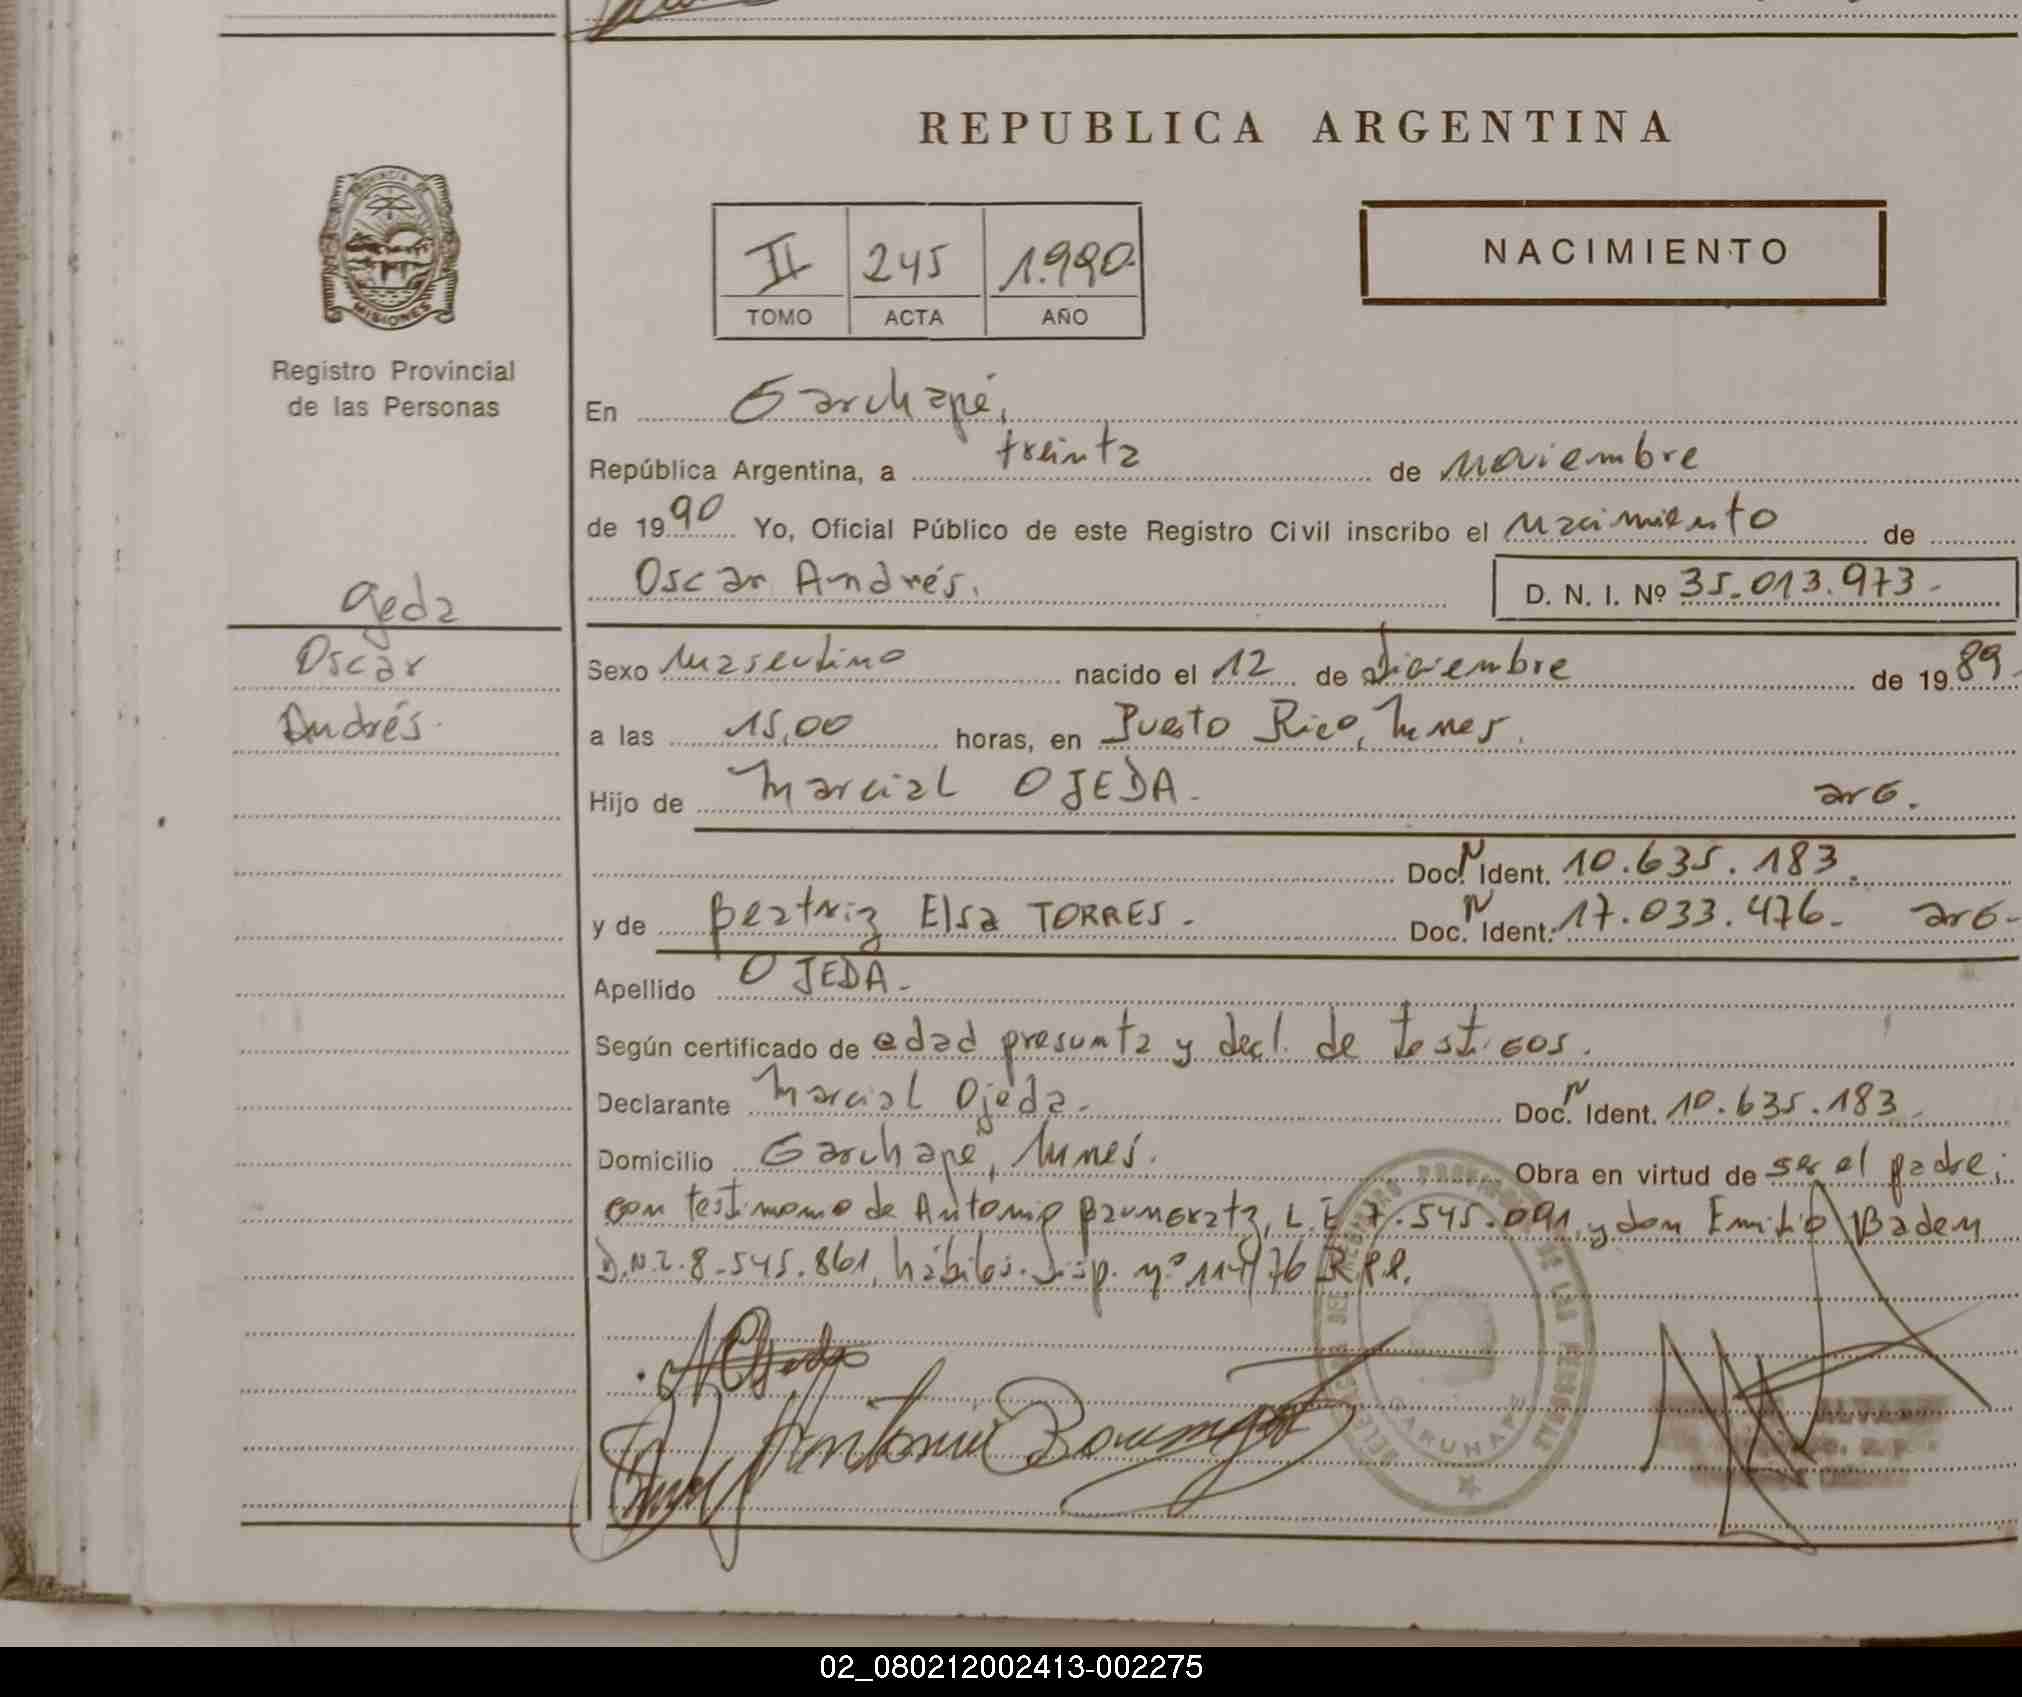 REPUBLICA ARGENTINA
PROVINCIA DE
MISIONES
Registro Provincial
de las Personas
NACIMIENTO
II 245 1.990.
TOMO ACTA AÑO
En Garuhapé,
República Argentina, a treinta de noviembre
de 1990 Yo, Oficial Público de este Registro Civil inscribo el nacimiento de
Oscar Andrés. D. N. I. Nº 35.013.973-
Ojeda
Oscar
Andrés.
Sexo masculino nacido el 12 de diciembre de 1989.
a las 15,00 horas, en Puesto Rico, Mnes.
Hijo de Marcial OJEDA. arg.
Doc. N Ident. 10.635.183.
y de Beatriz Elsa TORRES. Doc. N Ident. 17.033.476. arg.
Apellido OJEDA.
Según certificado de edad presunta y decl. de testigos.
Declarante Marcial Ojeda. Doc. N Ident. 10.635.183.
Domicilio Garuhapé, Mnes. Obra en virtud de ser el padre;
con testimonio de Antonio Baumgratz, L.E 7.545.091, y don Emilio Baden
D.N.I. 8.545.861, hábiles. Disp. nº 114/76 R.P.P.
M Ojeda
Antonio
REGISTRO PROVINCIAL DE LAS PERSONAS
GARUHAPE
02_080212002413-002275